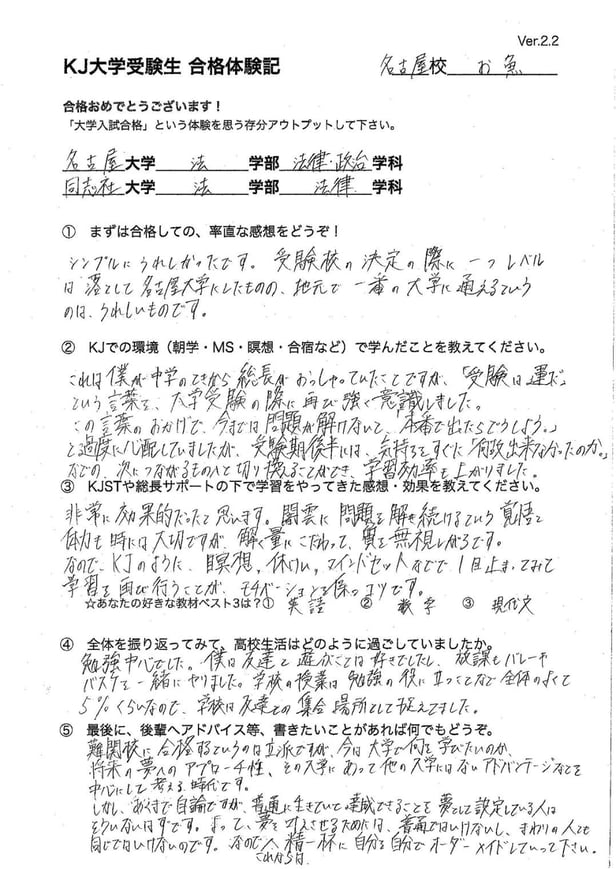 Ver.2.2
KJ大学受験生 合格体験記 名古屋校 お魚
合格おめでとうございます！
「大学入試合格」という体験を思う存分アウトプットして下さい。
名古屋大学 法 学部 法律・政治 学科
同志社大学 法 学部 法律 学科
① まずは合格しての、率直な感想をどうぞ！
シンプルにうれしかったです。受験校の決定の際に一つレベル
は落として名古屋大学にしたものの、地元で一番の大学に通えるという
のは、うれしいものです。
② KJでの環境（朝学・MS・瞑想・合宿など）で学んだことを教えてください。
これは僕が中学のときから総長がおっしゃっていたことですが、「受験は運だ」
という言葉を、大学受験の際に再び強く意識しました。
この言葉のおかげで、今までは問題が解けないで、「本番で出たらどうしよう。」
と過度に心配していましたが、受験期後半には、気持ちをすぐに「何故出来なかったのか。」
などの、次につながるものへと切り換えることができ、学習効率も上がりました。
③ KJSTや総長サポートの下で学習をやってきた感想・効果を教えてください。
非常に効果的だったと思います。闇雲に問題を解き続けるという覚悟と
体力も時には大切ですが、解く量にこだわって、質を無視しがちです。
なので、KJのように、瞑想、休けい、マインドセットなどで1回止まってみて
学習を再び行うことが、モチベーションを保つコツです。
☆あなたの好きな教材ベスト3は？① 英語 ② 数学 ③ 現代文
④ 全体を振り返ってみて、高校生活はどのように過ごしていましたか。
勉強中心でした。僕は友達と遊ぶことは好きでしたし、放課もバレーや
バスケを一緒にやりました。学校の授業は勉強の役に立つことなど全体のよくて
5%くらいなので、学校は友達との集合場所として捉えてました。
⑤ 最後に、後輩へアドバイス等、書きたいことがあれば何でもどうぞ。
難関校に合格するというのは立派ですが、今は大学で何を学びたいのか、
将来の夢へのアプローチ性、その大学にあって他の大学にはないアドバンテージなどを
中心にして考える時代です。
しかし、あくまで自論ですが、普通に生きていて達成できることを夢として設定している人は
そういないはずです。よって、夢を叶えさせるためには、普通ではいけないし、まわりの人とも
同じではいけないのです。なので、精一杯に自分を自分でオーダーメイドしていって下さい。
これからは、